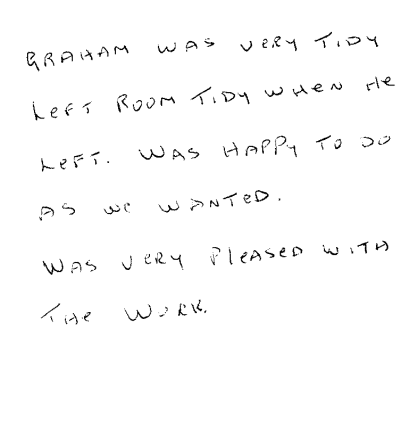 GRAHAM WAS VERY TIDY
LEFT ROOM TIDY WHEN HE
LEFT. WAS HAPPY TO DO
AS WE WANTED.
WAS VERY PLEASED WITH
THE WORK.